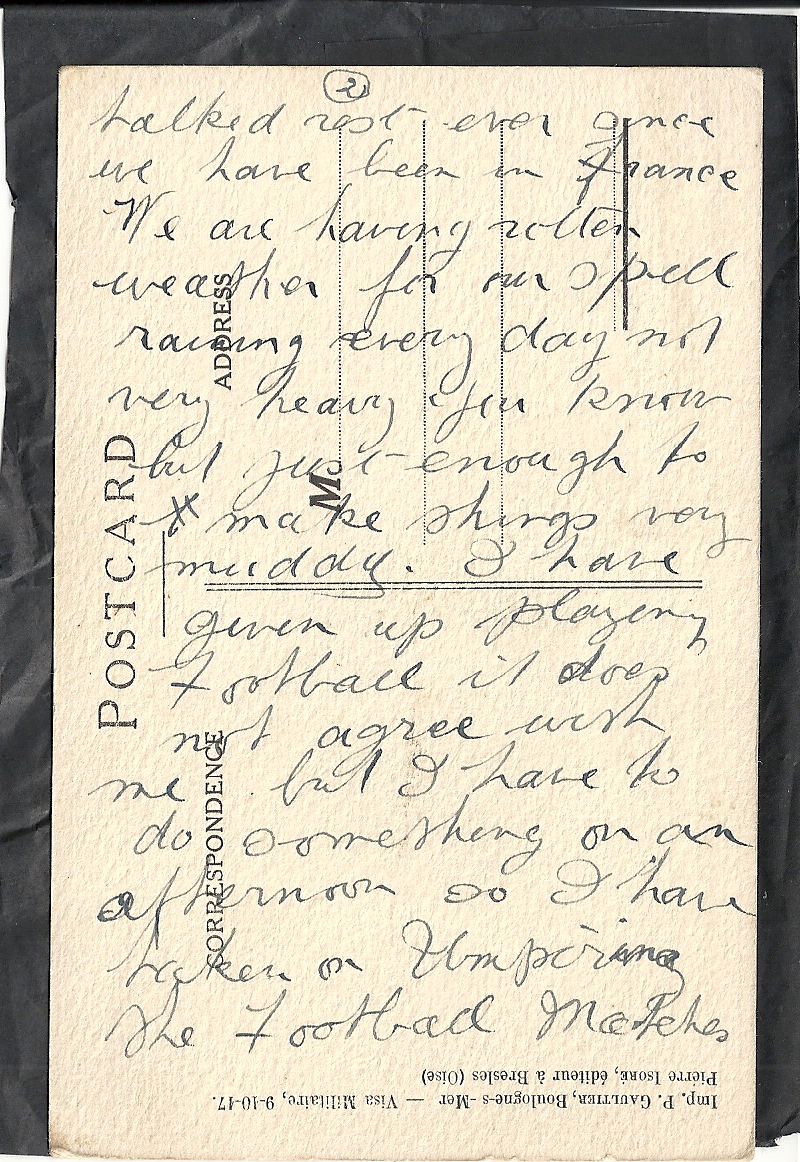 2
talked rest ever since
we have been in France
We are having rotten
weather for our spell
raining every day not
very heavy you know
but just enough to
make things very
muddy. I have
given up playing
Football it does
not agree with
me but I have to
do something on an
afternoon so I have
taken on Umpiring
the Football Matches
POSTCARD
ADDRESS
CORRESPONDENCE
M
Imp. P. GAULTIER, Boulogne-s-Mer — Visa Militaire, 9-10-47.
Pierre ISORÉ, éditeur à Bresles (Oise)